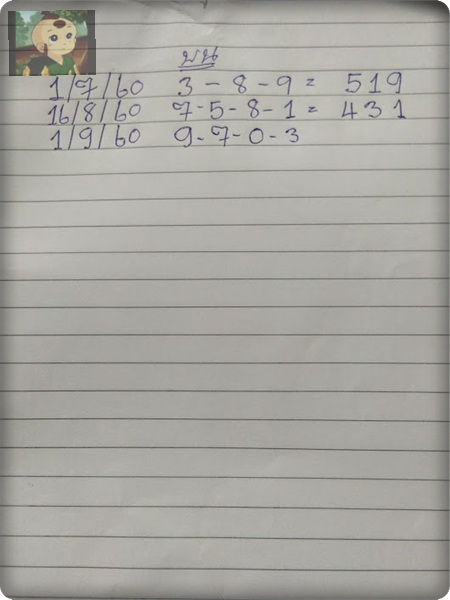 บน
1/7/60 3 - 8 - 9 = 519
16/8/60 7-5-8-1 = 431
1/9/60 9-7-0-3